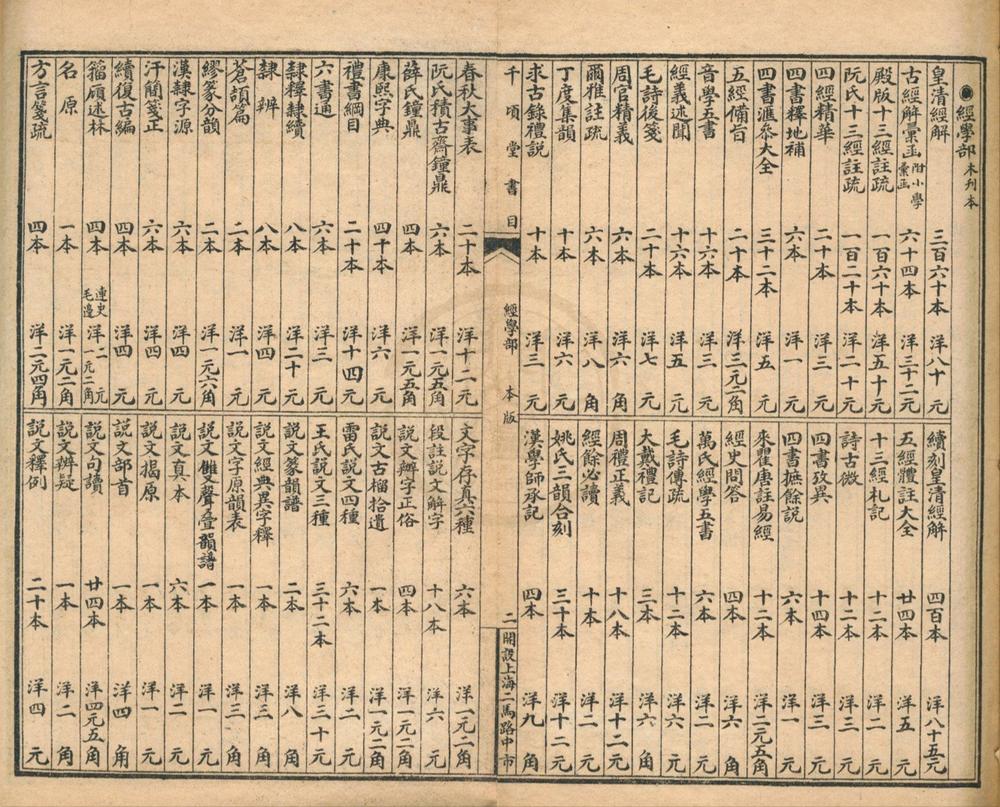 經學部 木刊本
皇清經解 三百六十本 洋八十元
古經解彙函 附小學彙函 六十四本 洋三十二元
殿版十三經註疏 一百六十本 洋五十元
阮氏十三經註疏 一百二十本 洋二十元
四經精華 二十本 洋三元
四書釋地補 六本 洋一元
四書滙叅大全 三十二本 洋五元
五經備旨 二十本 洋三元二角
音學五書 十六本 洋三元
經義述聞 十六本 洋五元
毛詩後箋 二十本 洋七元
周官精義 六本 洋六角
爾雅註疏 六本 洋八角
丁度集韻 十本 洋六元
求古錄禮說 十本 洋三元
續刻皇清經解 四百本 洋八十五元
五經體註大全 廿四本 洋五元
十三經札記 十二本 洋二元
詩古微 十二本 洋三元
四書攷異 十四本 洋三元
四書摭餘說 六本 洋一元
來瞿唐註易經 十二本 洋二元五角
經史問答 四本 洋六角
萬氏經學五書 六本 洋二元
毛詩傳疏 十二本 洋六元
大戴禮記 三本 洋六角
周禮正義 十八本 洋十二元
經餘必讀 十本 洋二元
姚氏三韻合刻 三十本 洋十二元
漢學師承記 四本 洋九角
千頃堂書目 經學部 本版 二 開設上海二馬路中市
春秋大事表 二十本 洋十二元
阮氏積古齋鐘鼎 六本 洋一元五角
薛氏鐘鼎 四本 洋一元五角
康熙字典 四十本 洋六元
禮書綱目 二十本 洋十四元
六書通 六本 洋三元
隸釋隸續 八本 洋二十元
隸辨 八本 洋四元
蒼頡篇 二本 洋一元
繆篆分韻 二本 洋一元六角
漢隸字源 六本 洋四元
汗簡箋正 六本 洋四元
續復古編 四本 洋四元
籀廎述林 四本 連史洋二元 毛邊洋一元二角
名原 一本 洋一元二角
方言箋疏 四本 洋二元四角
文字存真六種 六本 洋一元二角
段註說文解字 十八本 洋六元
說文辨字正俗 四本 洋一元二角
說文古榴拾遺 一本 洋一元二角
雷氏說文四種 六本 洋二元
王氏說文三種 三十二本 洋三十元
說文篆韻譜 二本 洋八角
說文經典異字釋 一本 洋三角
說文字原韻表 一本 洋三角
說文雙聲疊韻譜 一本 洋一元
說文真本 六本 洋二元
說文揭原 一本 洋一元
說文部首 一本 洋四角
說文句讀 廿四本 洋四元五角
說文辨疑 一本 洋二角
說文釋例 二十本 洋四元